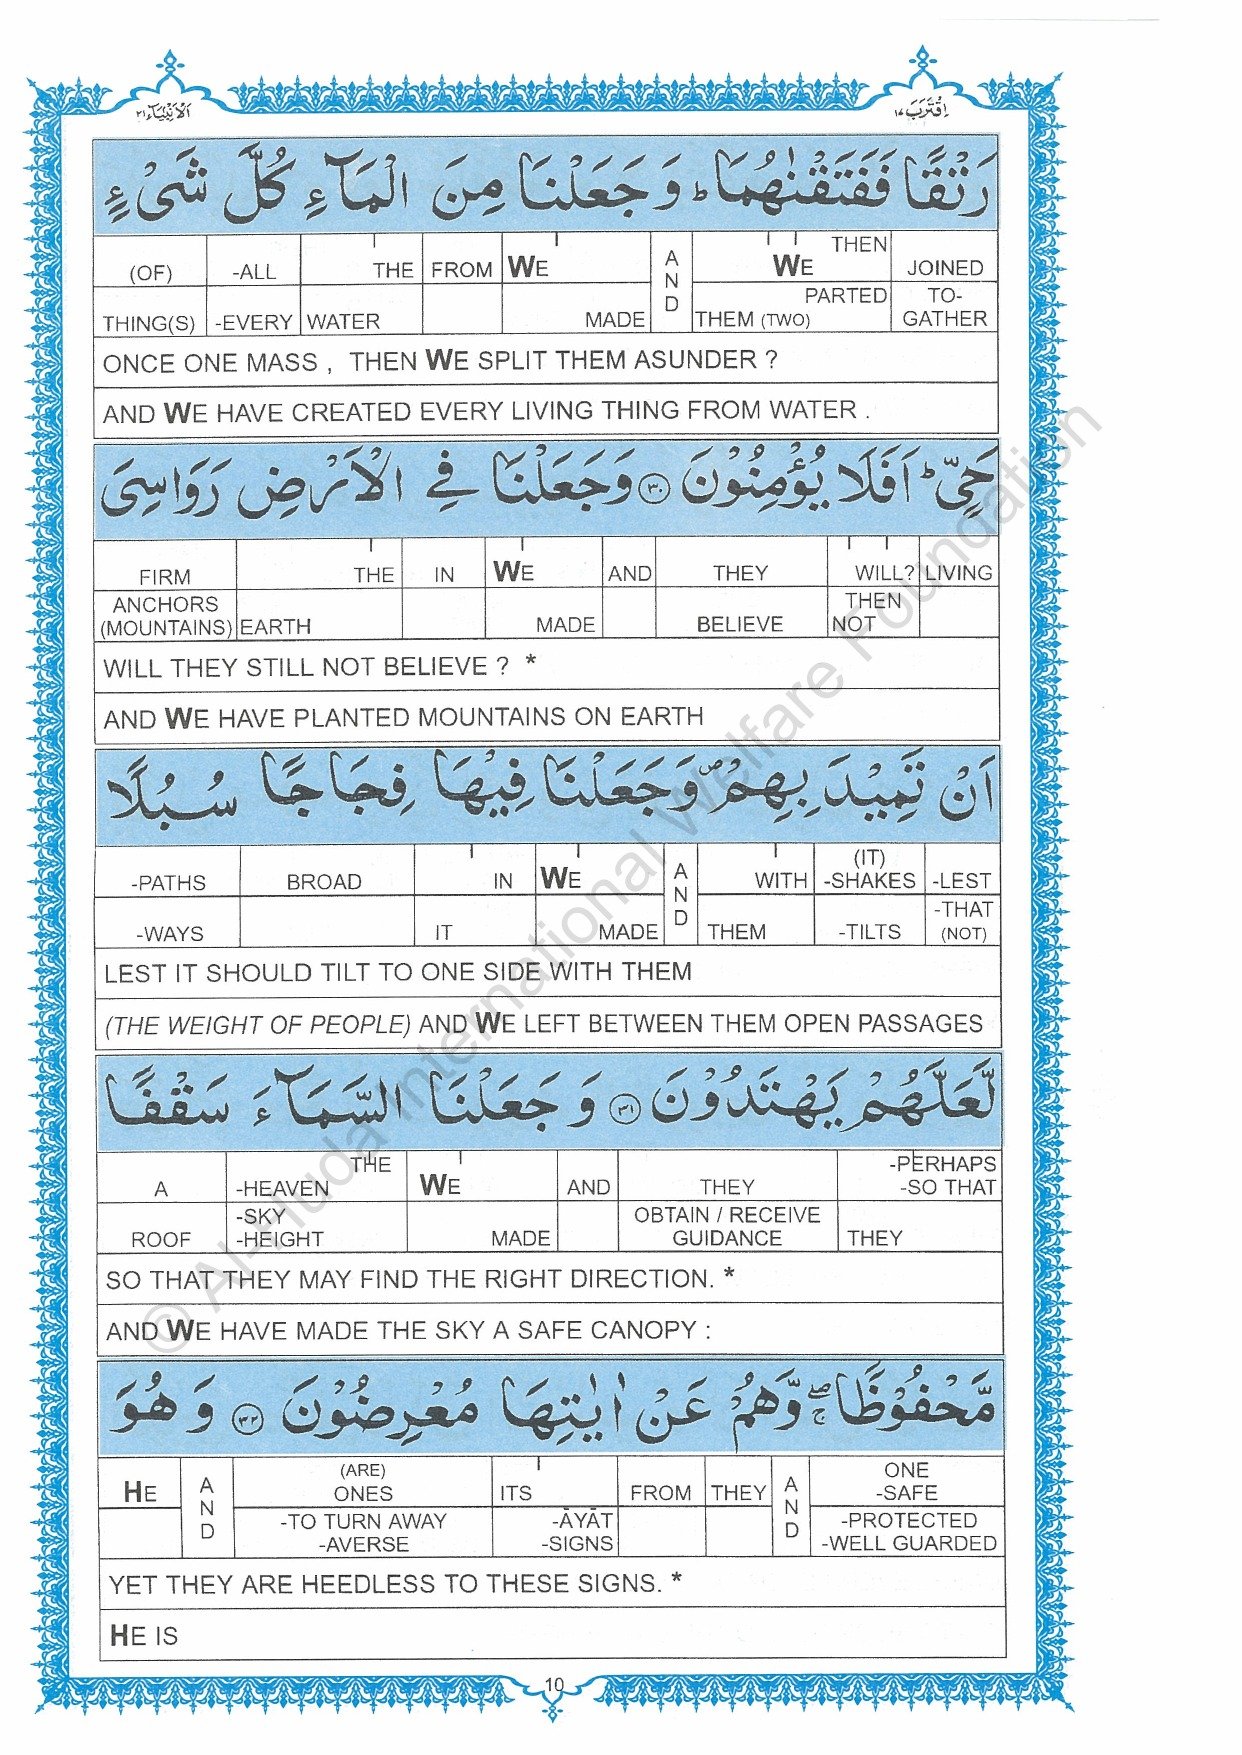 اَلْاَنْۢبِيَآء ٢١
اِقْتَرَبَ ١٧
رَتْقًا فَفَتَقْنٰهُمَا ؕ وَ جَعَلْنَا مِنَ الْمَآءِ كُلَّ شَیْءٍ
(OF) -ALL THE FROM WE AND WE THEN JOINED
THING(S) -EVERY WATER MADE THEM (TWO) PARTED TO-GATHER
ONCE ONE MASS , THEN WE SPLIT THEM ASUNDER ?
AND WE HAVE CREATED EVERY LIVING THING FROM WATER .
حَیٍّ ؕ اَفَلَا يُؤْمِنُوْنَ ۝٣٠ وَ جَعَلْنَا فِی الْاَرْضِ رَوَاسِیَ
FIRM THE IN WE AND THEY WILL? LIVING
ANCHORS (MOUNTAINS) EARTH MADE BELIEVE THEN NOT
WILL THEY STILL NOT BELIEVE ? *
AND WE HAVE PLANTED MOUNTAINS ON EARTH
اَنْ تَمِيْدَ بِهِمْ ۪ وَ جَعَلْنَا فِيْهَا فِجَاجًا سُبُلًا
-PATHS BROAD IN WE AND WITH (IT) -SHAKES -LEST
-WAYS IT MADE THEM -TILTS -THAT (NOT)
LEST IT SHOULD TILT TO ONE SIDE WITH THEM
(THE WEIGHT OF PEOPLE) AND WE LEFT BETWEEN THEM OPEN PASSAGES
لَّعَلَّهُمْ يَهْتَدُوْنَ ۝٣١ وَ جَعَلْنَا السَّمَآءَ سَقْفًا
A THE -HEAVEN WE AND THEY -PERHAPS -SO THAT
ROOF -SKY -HEIGHT MADE OBTAIN / RECEIVE GUIDANCE THEY
SO THAT THEY MAY FIND THE RIGHT DIRECTION. *
AND WE HAVE MADE THE SKY A SAFE CANOPY :
مَّحْفُوْظًا ۖۚ وَّهُمْ عَنْ اٰيٰتِهَا مُعْرِضُوْنَ ۝٣٢ وَ هُوَ
HE AND (ARE) ONES ITS FROM THEY AND ONE -SAFE
-TO TURN AWAY -AVERSE -ĀYĀT -SIGNS -PROTECTED -WELL GUARDED
YET THEY ARE HEEDLESS TO THESE SIGNS. *
HE IS
10
© Al-Huda International Welfare Foundation